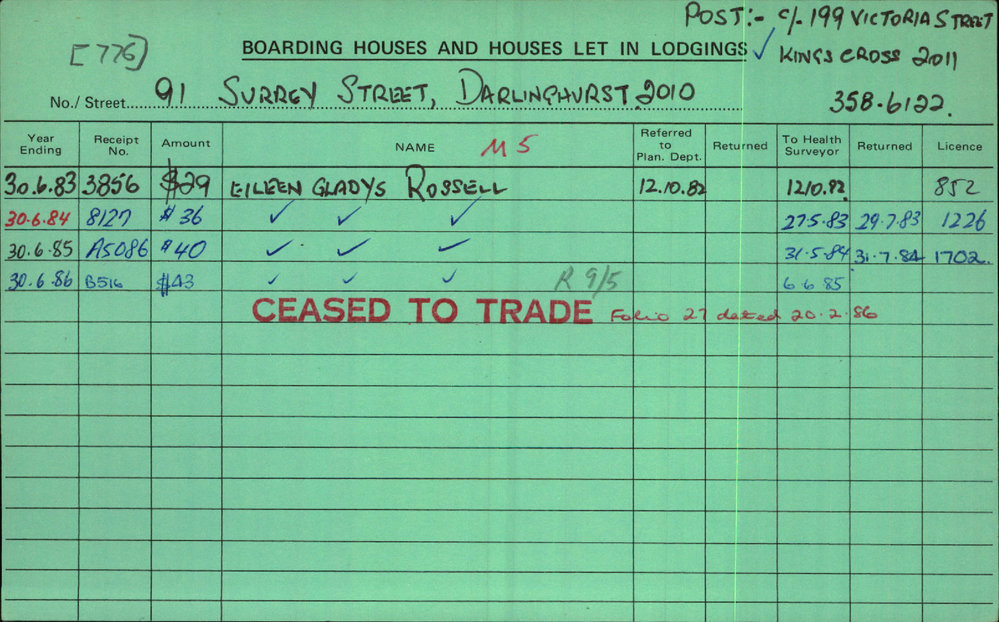 POST:- c/- 199 VICTORIA STREET
[776]
BOARDING HOUSES AND HOUSES LET IN LODGINGS ✓ KINGS CROSS 2011
No./Street 91 SURREY STREET, DARLINGHURST 2010 358-6122.
Year Ending Receipt No. Amount NAME M5 Referred to Plan. Dept. Returned To Health Surveyor Returned Licence
30.6.83 3856 $29 EILEEN GLADYS ROSSELL 12.10.82 12.10.82 852
30.6.84 8127 $36 ✓ ✓ ✓ 27.5.83 29.7.83 1226
30.6.85 A5086 $40 ✓ ✓ ✓ 31.5.84 31.7.84 1702.
30.6.86 B516 $43 ✓ ✓ ✓ R 9/5 6.6.85
CEASED TO TRADE Folio 27 dated 20.2.86